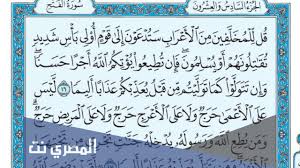 الجزء السادس والعشرون سورة الفتح
قُل لِّلْمُخَلَّفِينَ مِنَ ٱلْأَعْرَابِ سَتُدْعَوْنَ إِلَىٰ قَوْمٍ أُو۟لِى بَأْسٍ شَدِيدٍ
تُقَٰتِلُونَهُمْ أَوْ يُسْلِمُونَ ۖ فَإِن تُطِيعُوا۟ يُؤْتِكُمُ ٱللَّهُ أَجْرًا حَسَنًا ۖ
وَإِن تَتَوَلَّوْا۟ كَمَا تَوَلَّيْتُم مِّن قَبْلُ يُعَذِّبْكُمْ عَذَابًا أَلِيمًا ١٦ لَّيْسَ
عَلَى ٱلْأَعْمَىٰ حَرَجٌ وَلَا عَلَى ٱلْأَعْرَجِ حَرَجٌ وَلَا عَلَى ٱلْمَرِيضِ حَرَجٌ ۗ
وَمَن يُطِعِ ٱللَّهَ وَرَسُولَهُۥ يُدْخِلْهُ جَنَّٰتٍ تَجْرِى
المصري نت